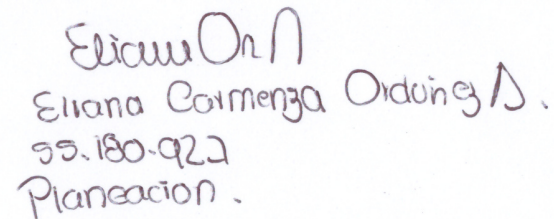 Eliana Or
Eliana Carmenza Orduña S.
55.180.922
Planeacion.